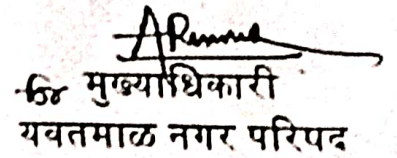 for मुख्याधिकारी
यवतमाळ नगर परिषद